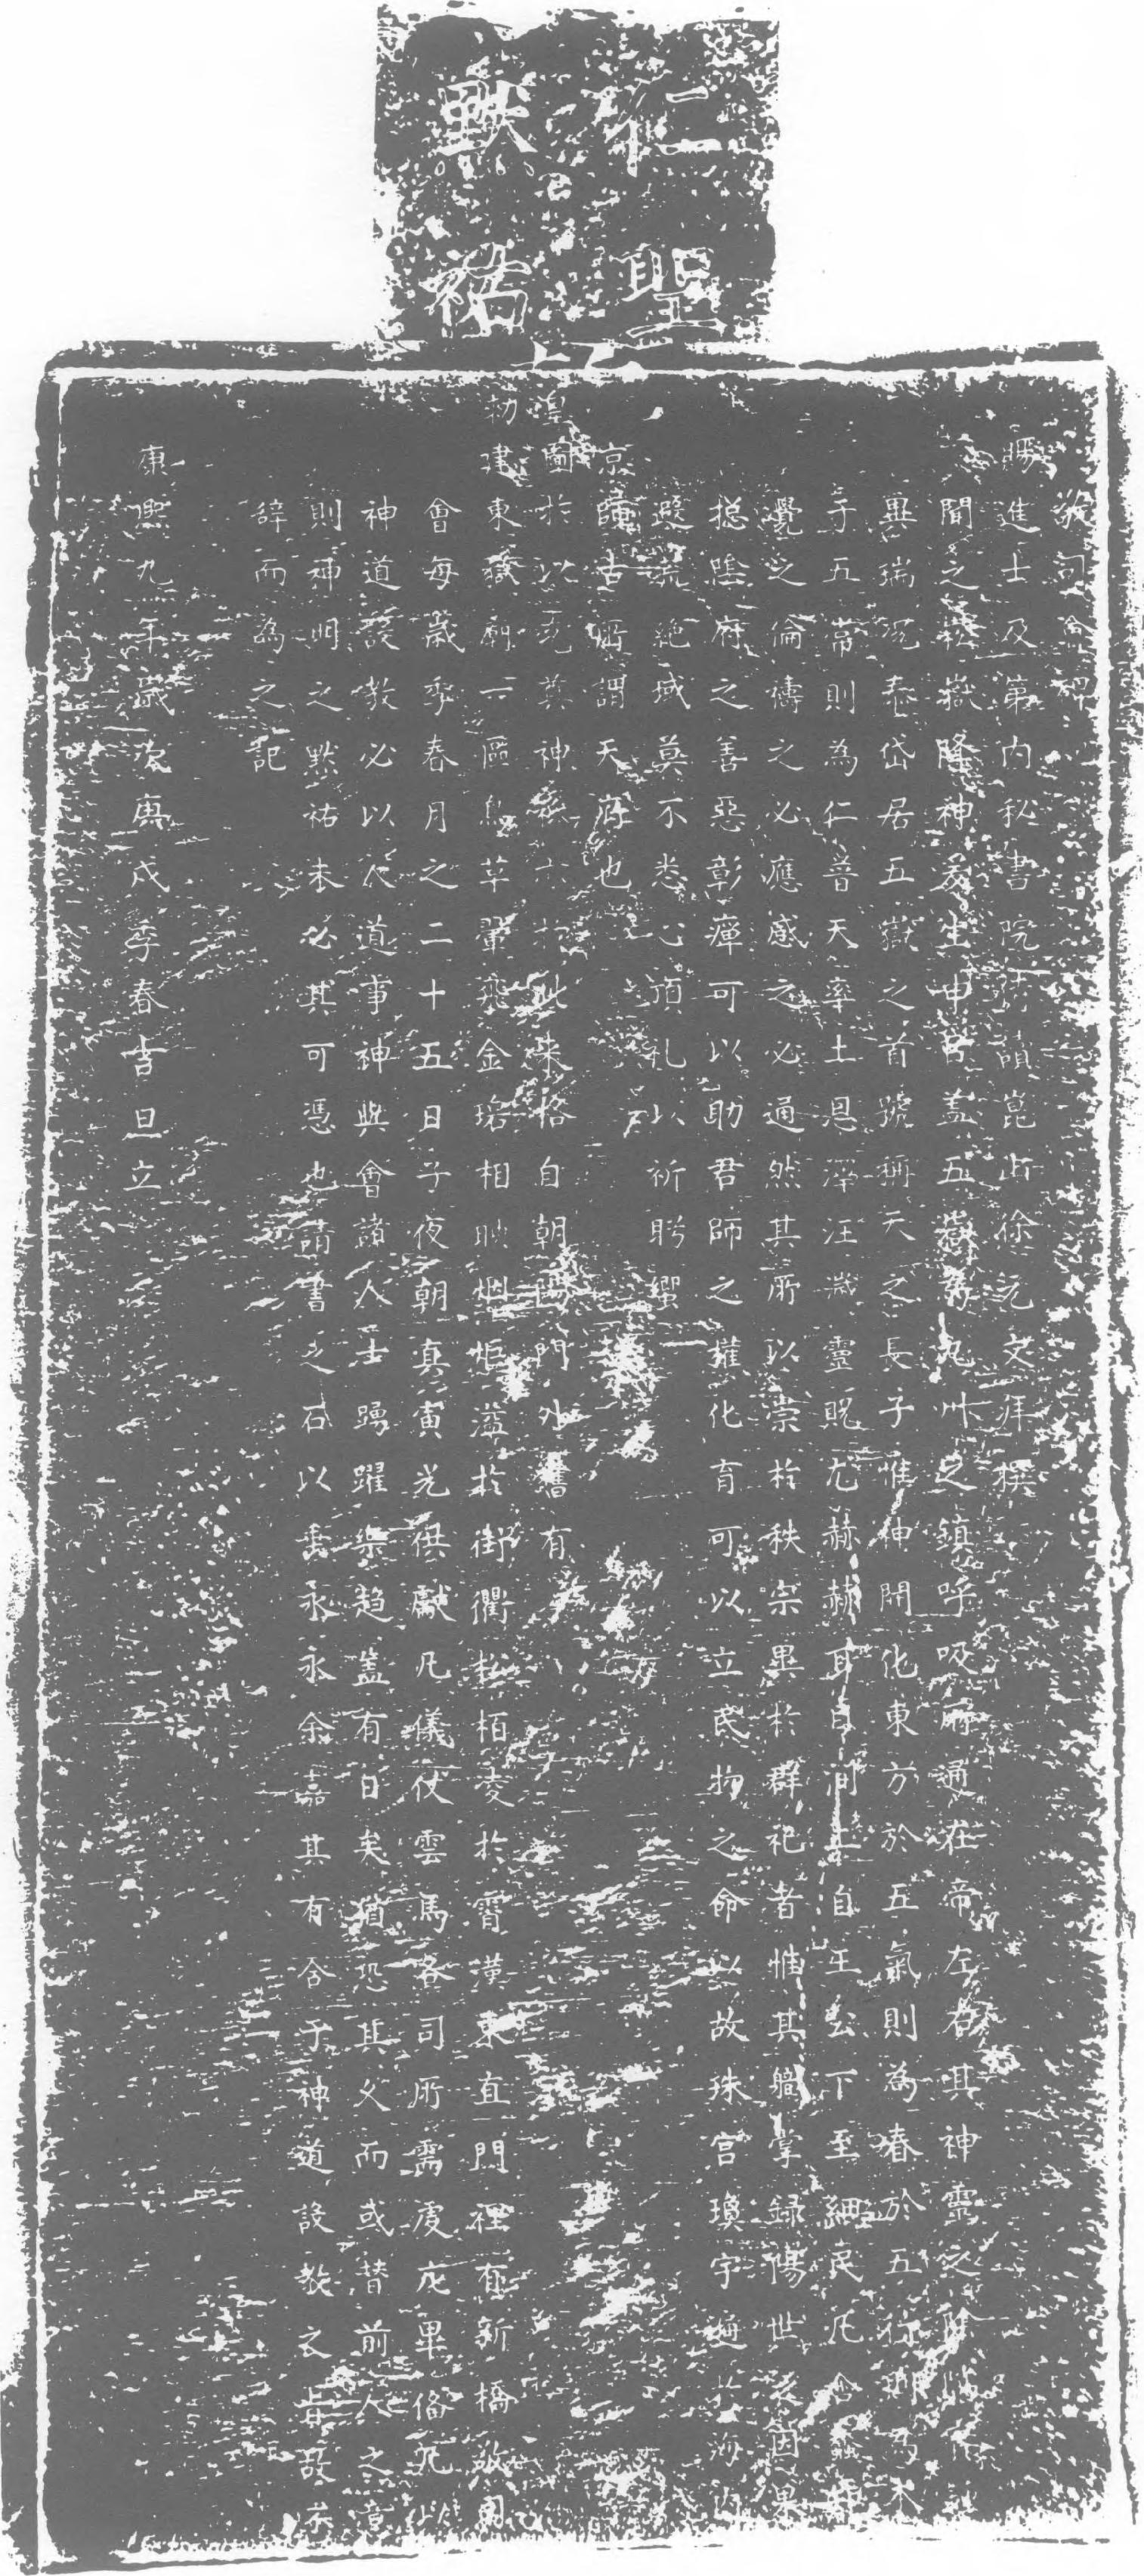 仁聖
默祐
敬司會碑
賜進士及第內秘書院 崑山徐元文拜撰
聞之崧嶽降神爰生申 蓋五嶽為九州之鎮呼吸 通在帝左右其神靈之
畢瑞 泰岱居五嶽之首號稱天之長子惟神開化東方於五氣則為春於五行則為木
于五常則為仁普天率土恩澤汪濊靈貺尤赫赫 自王公下至細民凡含
覺之倫禱之必應感之必通然其所以崇於秩宗畢於群祀者惟其職掌錄陽世之因果
摠陰府之善惡彰癉可以助君師之權化育可以立民物之命以故珠宮瓊宇遍於海內
遐荒絕域莫不悉心頂礼以祈肹蠁
京師古所謂天府也
皇圖於以 奠神 於此来格自朝陽門外舊有
勅建東嶽廟一區鳥革翬飛金碧相映烟 溢於街衢松栢凌於霄漢東直門裡 新橋
會每歲季春月之二十五日子夜朝真寅 供獻凡儀仗雲馬各司所需 畢俻
神道設教必以人道事神與會諸人士踴躍樂趋盖有日矣猶恐其久而或替前人之意
則神明之默祐未必其可憑也請書之石以垂永永余嘉其有合于神道設教之 故
辞而為之記
康熙九年歲次庚戌季春吉旦立